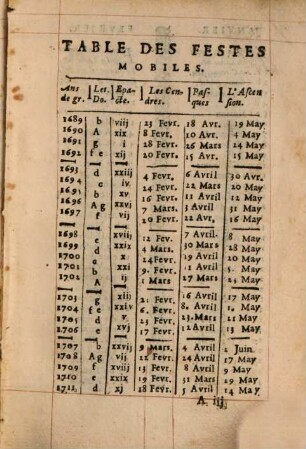 TABLE DES FESTES
MOBILES.
Ans de gr. Les. Do. Epacte. Les Cendres. Pasques L'Ascension.
1689 b viij 23 Fevr. 18 Avr. 19 May
1690 A xix 8 Fevr, 10 Avr. 4 May
1691 g i 28 Fevr. 26 Mars 24 May
1692 f e xij 20 Fevr. 15 Avr. 15 May
1693 d xxiij 4 Fevr, 6 Avril 30 Av.
1694 c iv 24 Fevr, 22 Mars 20 May
1695 b xv 16 Fevr 11 Avril 12 May
1696 A g xxvj 7 Mars 3 Avril 31 May
1697 f vij 20 Fevr, 22 Avr, 16 May
1698 e xviij 12 Fev. 7 Avril. 8 May
1699 d xxix 4 Mars. 30 Mars 28 May
1700 c x 24 Fevr. 19 Avril 20 May
1701 b xxi 9 Fevr.
1702 A ij 1 Mars
1703 g xiij 21 Fevr. Avril 17 May
1704 f e xxiv 6 Fevr. Avril 1 May
1705 d v 25 Fevr. 23. Mars 21 May
1706 c xvj 17 Fevr, 12 Avril 13 May
1707 b xxvij 9 Mars. 24 Avril 2 Juin.
1708 A g vij Fevr 17 May
1709 f xviij 13 Fevr. Avril 9 May
1710 e xxix Fevr. 31 Mars 29 May
1711, d xj 18 Fevr. 5 Avril 14 May
A iij